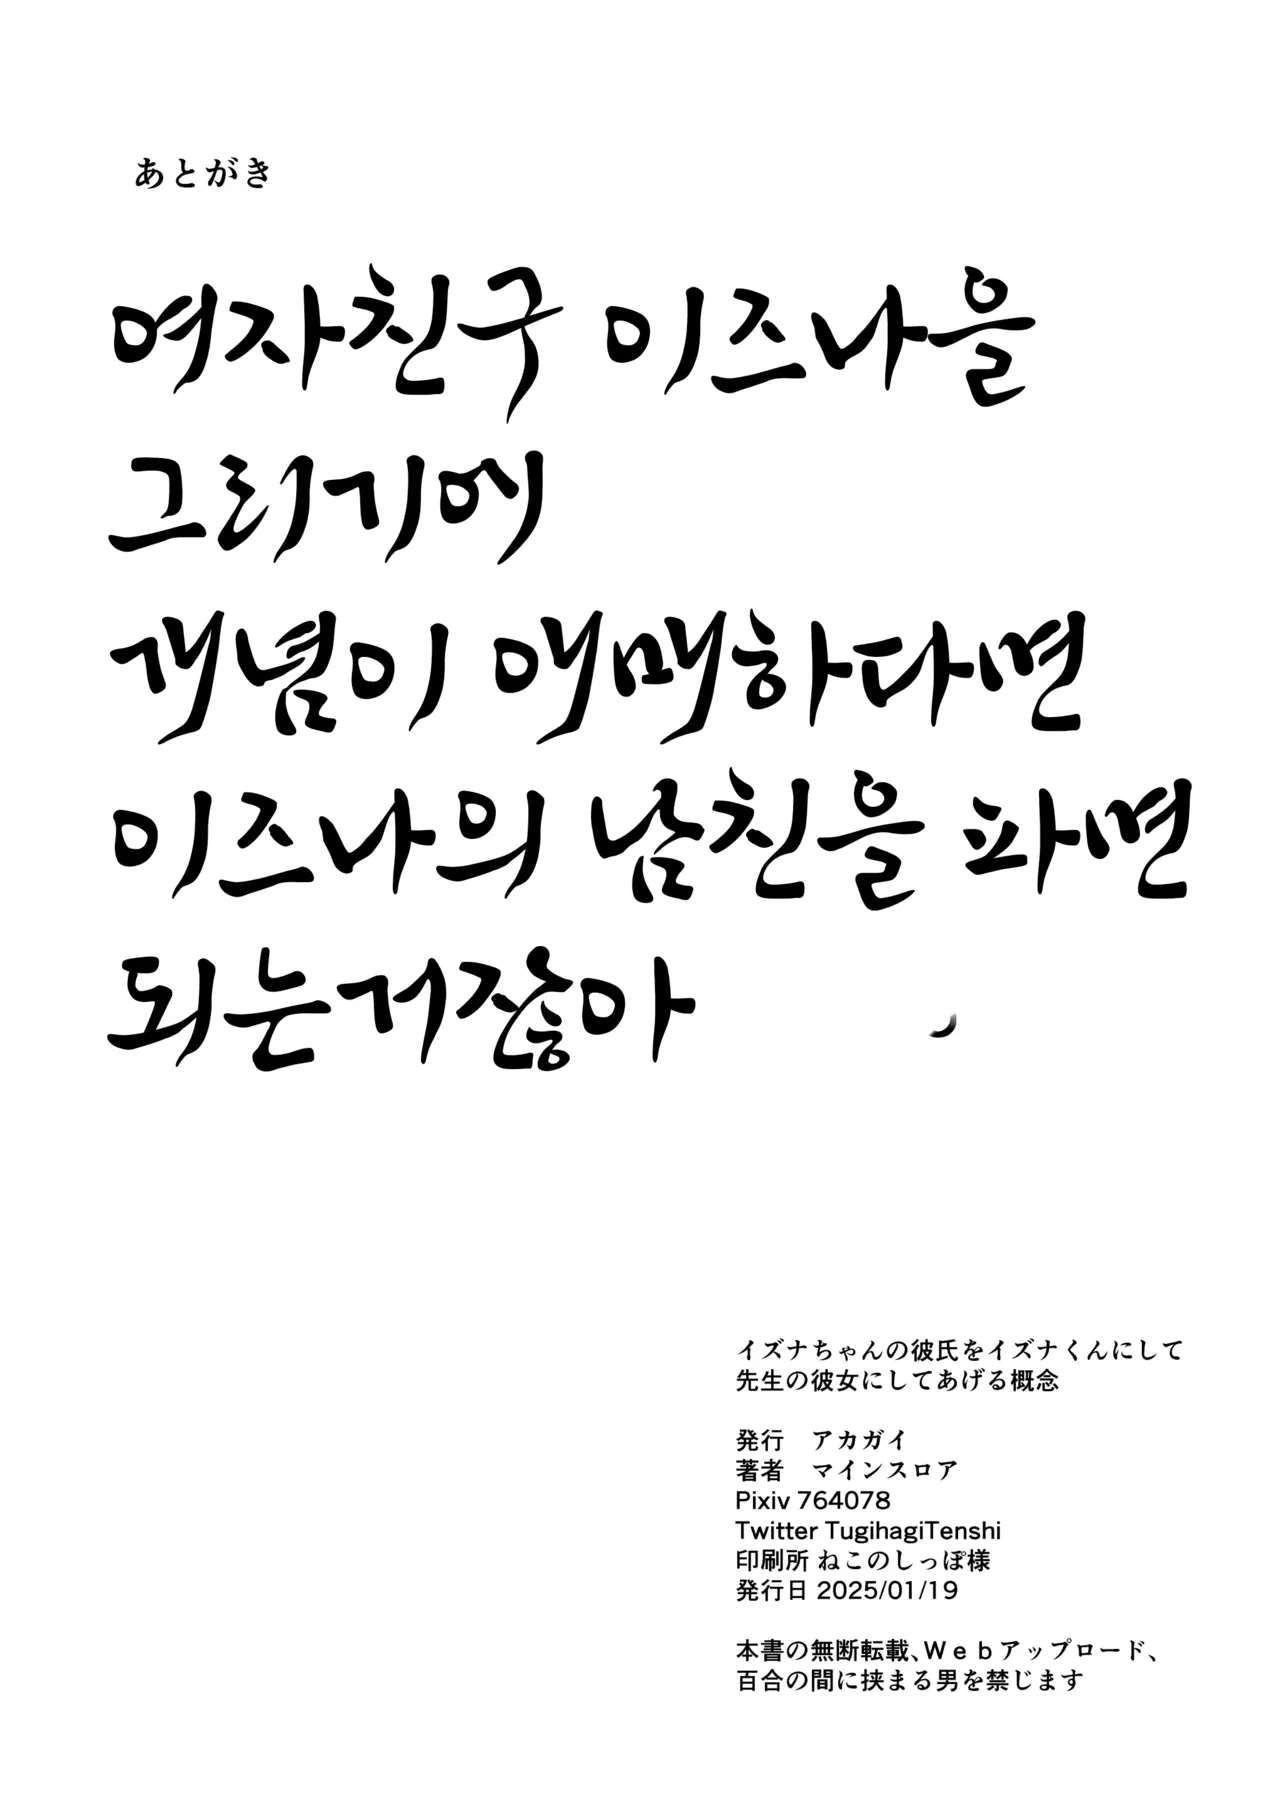 あとがき
여자친구 이즈나을
그리기에
개념이 애매하다면
이즈나의 남친을 파면
되는거잖아
イズナちゃんの彼氏をイズナくんにして
先生の彼女にしてあげる概念
発行　アカガイ
著者　マインスロア
Pixiv 764078
Twitter TugihagiTenshi
印刷所 ねこのしっぽ様
発行日 2025/01/19
本書の無断転載、Ｗｅｂアップロード、
百合の間に挟まる男を禁じます